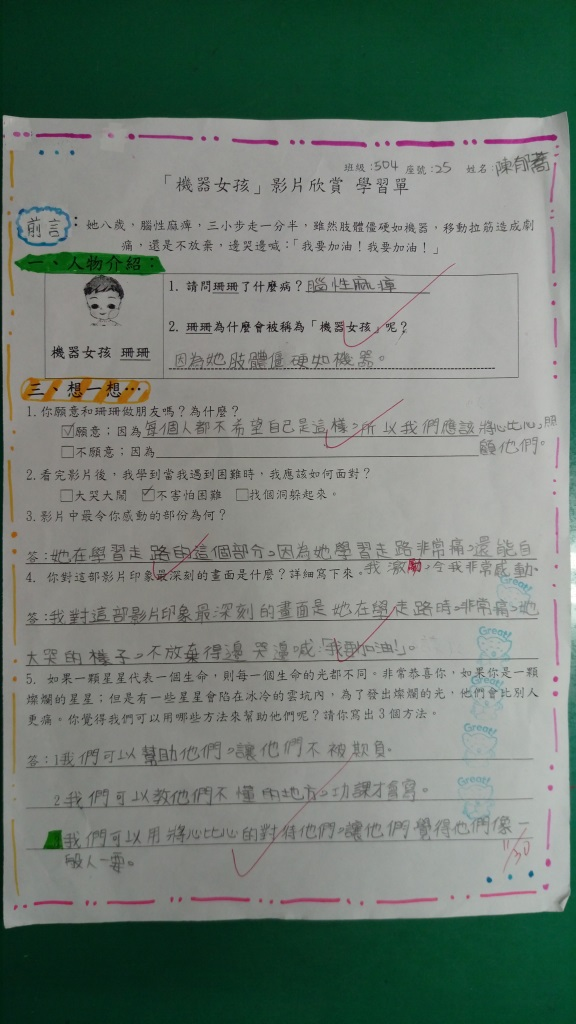 班級:504 座號:25 姓名:陳郁蕎
「機器女孩」影片欣賞 學習單
前言:她八歲,腦性麻痺,三小步走一分半,雖然肢體僵硬如機器,移動拉筋造成劇
痛,還是不放棄,邊哭邊喊:「我要加油!我要加油!」
一、人物介紹:
1. 請問珊珊了什麼病?腦性麻痺
2. 珊珊為什麼會被稱為「機器女孩」呢?
機器女孩 珊珊
因為她肢體僵硬如機器。
三、想一想…
1.你願意和珊珊做朋友嗎?為什麼?
☑願意;因為每個人都不希望自己是這樣,所以我們應該將心比心,照
□不願意;因為 顧他們。
2.看完影片後,我學到當我遇到困難時,我應該如何面對?
□大哭大鬧 ☑不害怕困難 □找個洞躲起來。
3.影片中最令你感動的部份為何?
答:她在學習走路的這個部分,因為她學習走路非常痛,還能自
4. 你對這部影片印象最深刻的畫面是什麼?詳細寫下來。我激勵,令我非常感動.
答:我對這部影片印象最深刻的畫面是她在學走路時,非常痛,她
Great!
大哭的樣子,不放棄得邊哭邊喊「我要加油!」。
Great!
5. 如果一顆星星代表一個生命,則每一個生命的光都不同。非常恭喜你,如果你是一顆
燦爛的星星;但是有一些星星會陷在冰冷的雲坑內,為了發出燦爛的光,他們會比別人
更痛。你覺得我們可以用哪些方法來幫助他們呢?請你寫出3個方法。
Great!
答:1我們可以幫助他們,讓他們不被欺負.
Great!
2我們可以教他們不懂的地方,功課才會寫。
Great!
我們可以用將心比心的對待他們,讓他們覺得他們像一
般人一要。
11/30